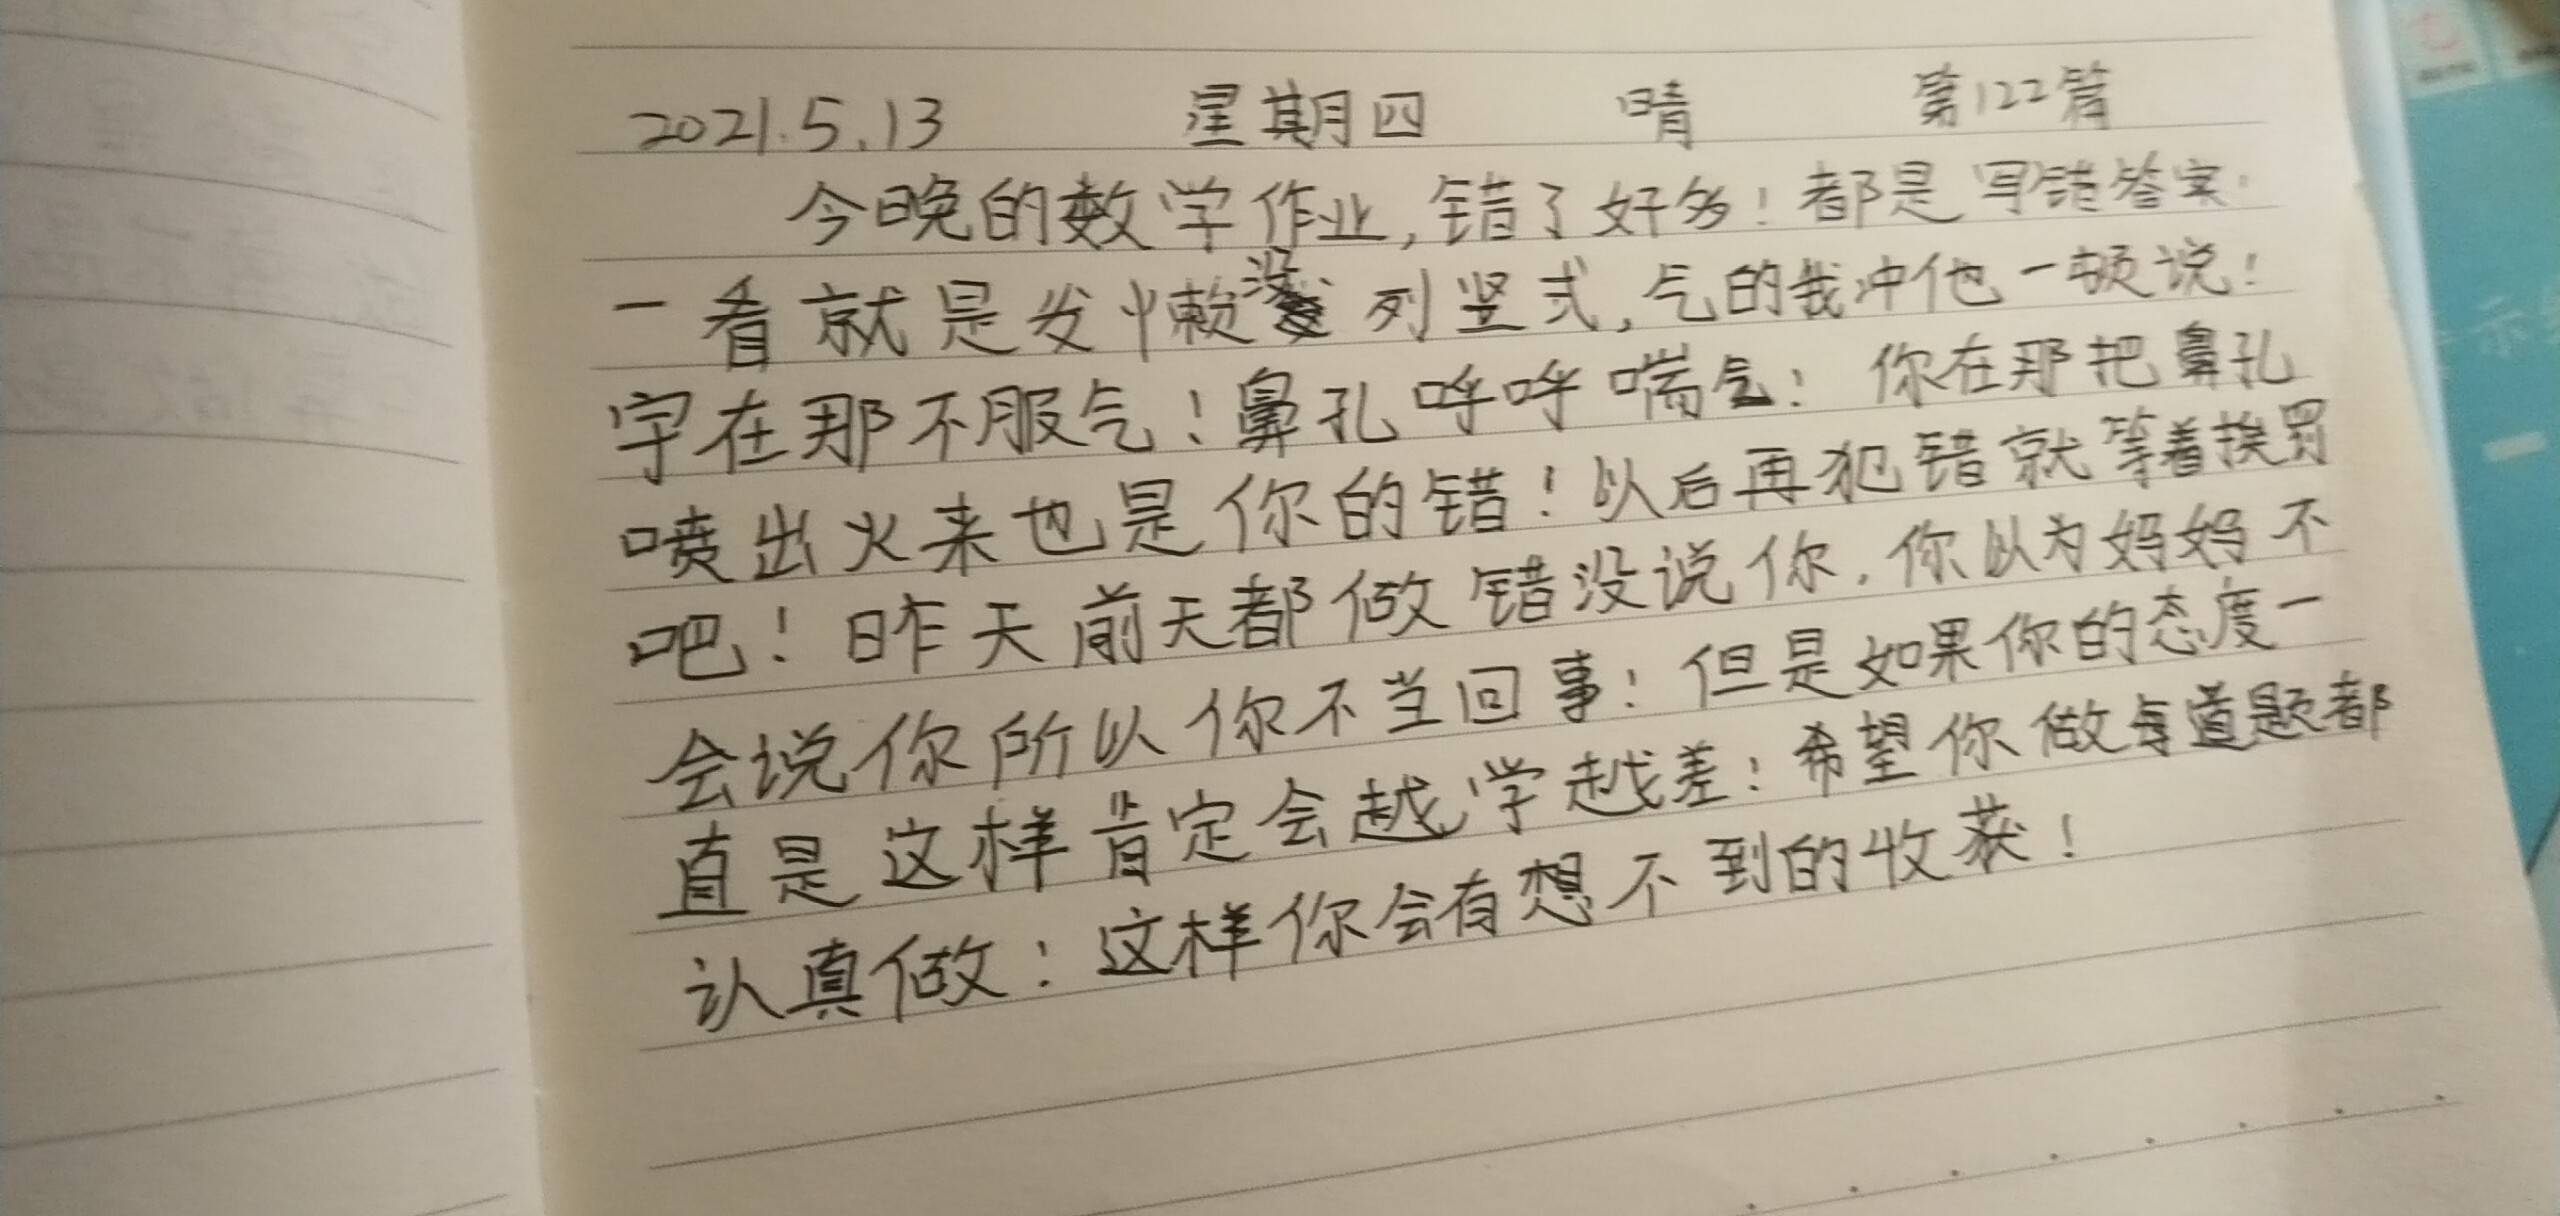 2021.5.13 星期四 晴 第122篇
今晚的数学作业,错了好多!都是写错答案!
一看就是发懒没列竖式,气的我冲他一顿说!
宇在那不服气!鼻孔呼呼喘气!你在那把鼻孔
喷出火来也是你的错!以后再犯错就等着挨罚
吧!昨天前天都做错没说你,你以为妈妈不
会说你所以你不当回事!但是如果你的态度一
直是这样肯定会越学越差!希望你做每道题都
认真做!这样你会有想不到的收获!
示